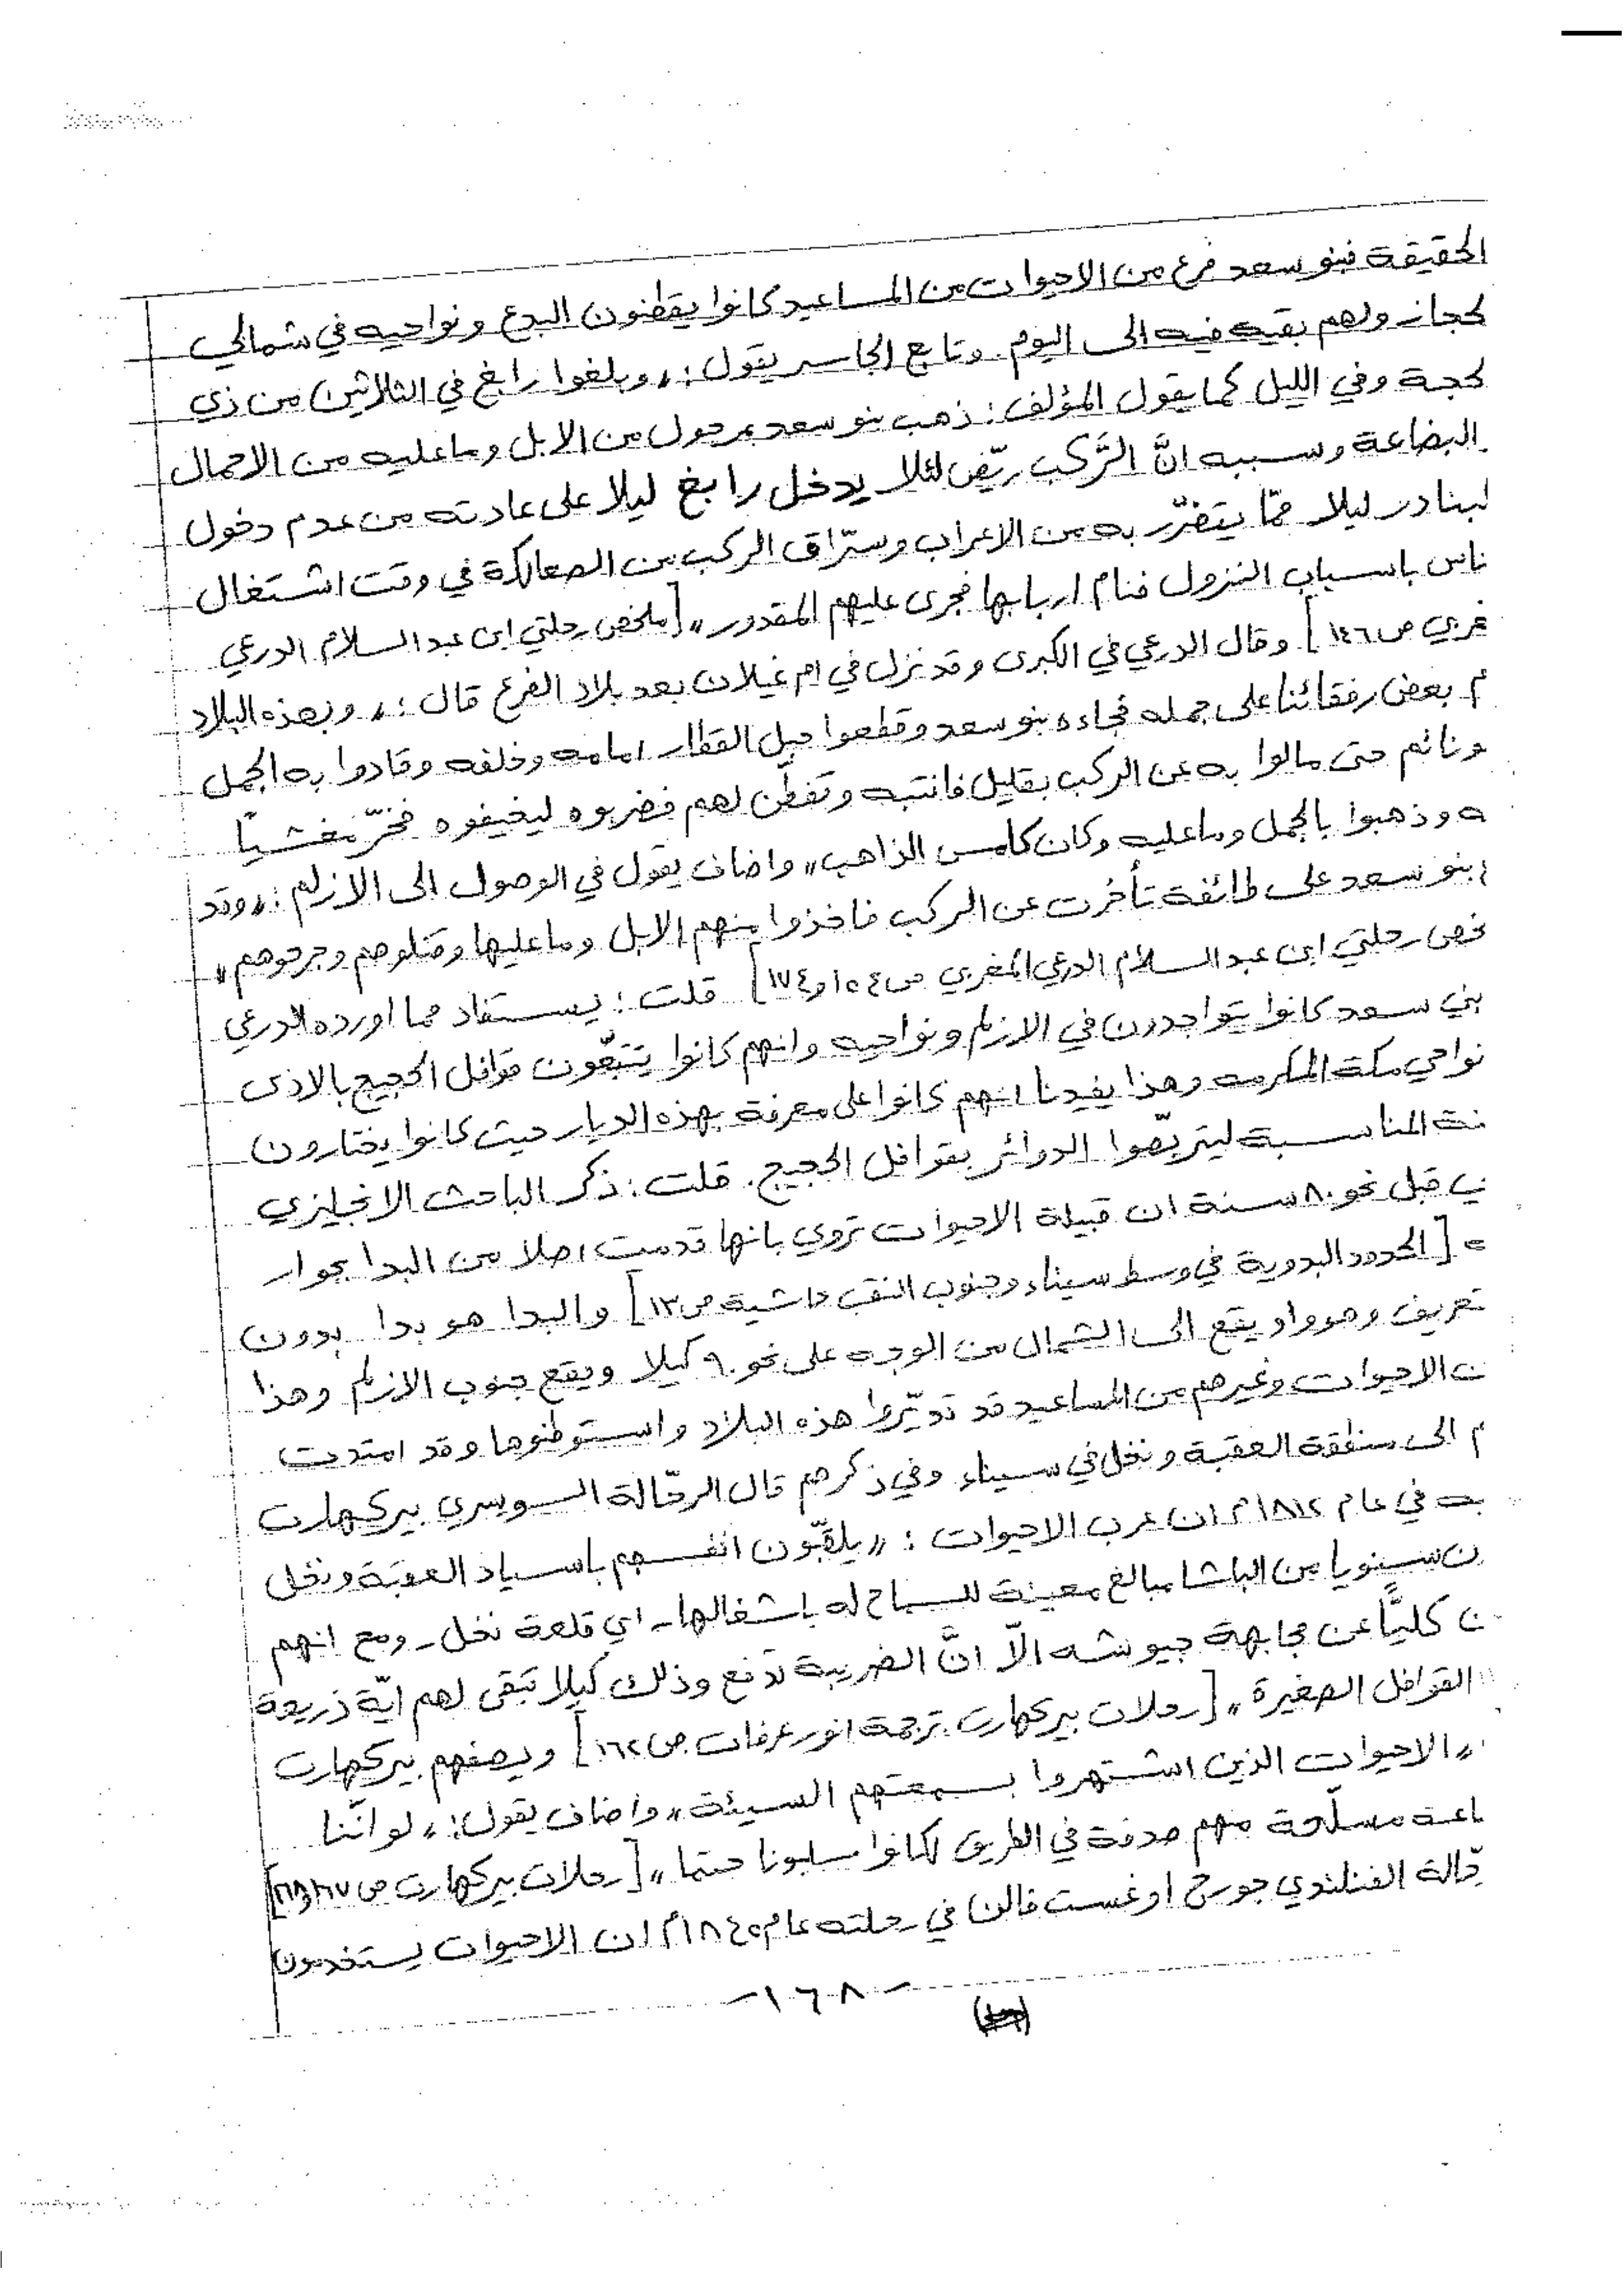 الحقيقة فبنو سعد فرع من الاحيوات من المساعيد كانوا يقطنون البدع ونواحيه في شمالي
لحجاز ولهم بقية فيه الى اليوم. وتابع الجاسر يقول: "وبلغوا رابغ في الثلاثين من ذي
لحجة وفي الليل كما يقول المؤلف: ذهب بنو سعد بمرحول من الابل وما عليه من الاحمال
البضاعة وسببه انَّ الرَّكب ريّض لئلا يدخل رابغ ليلا على عادته من عدم دخول
لبنادر ليلا ممّا يتضرّر به من الاعراب وسرّاق الركب من الصعالكة في وقت اشتغال
ناس باسباب النزول فنام اربابها فجرى عليهم المقدور" [ملخص رحلتي ابن عبد السلام الدرعي
غربي ص١٤٦] وقال الدرعي في الكبرى وقد نزل في ام غيلان بعد بلاد الفرع قال: "وبهذه البلاد
م بعض رفقائنا على جمله فجاءه بنو سعد وقطعوا حبل القطار امامه وخلفه وقادوا به الجمل
و نائم حتى مالوا به عن الركب بقليل فانتبه وتفطّن لهم فضربوه ليخيفوه فخرّ مغشياً
ه وذهبوا بالجمل وما عليه وكان كامس الذاهب" واضاف يقول في الوصول الى الازلم: "وقد
بنو سعد على طائفة تأخرت عن الركب فاخذوا منهم الابل وما عليها وقتلوهم وجرحوهم"
خص رحلتي ابن عبد السلام الدرعي المغربي ص١٥٤ و١٧٤] قلت: يستفاد مما اورده الدرعي
بني سعد كانوا يتواجدون في الازلم ونواحيه وانهم كانوا يتتبّعون قوافل الحجيج بالاذى
نواحي مكة المكرمه وهذا يفيدنا انهم كانوا على معرفة بهذه الديار حيث كانوا يختارون
نة المناسبة ليتربّصوا الدوائر بقوافل الحجيج. قلت: ذكر الباحث الانجليزي
ي قبل نحو ٨٠ سنة ان قبيلة الاحيوات تروي بانها قدمت اصلا من البدا بجوار
ه [الحدود البدوية في وسط سيناء وجنوب النقب حاشية ص١٣] والبدا هو بدا بدون
تعريف وهو واد يقع الى الشمال من الوجه على نحو ٩٠ كيلا ويقع جنوب الازلم وهذا
ن الاحيوات وغيرهم من المساعيد قد تديّروا هذه البلاد واستوطنوها وقد امتدت
م الى منطقة العقبة ونخل في سيناء وفي ذكرهم قال الرحّالة السويسري بيركهارت
به في عام ١٨١٢م ان عرب الاحيوات: "يلقّبون انفسهم باسياد العقبة ونخل
ن سنويا من الباشا مبالغ معينة للسماح له باشغالها - اي قلعة نخل - ومع انهم
ن كليًّا عن مجابهة جيوشه الاّ انَّ الضريبة تدفع وذلك كيلا تبقى لهم ايّة ذريعة
القوافل الصغيرة" [رحلات بيركهارت ترجمة انور عرفات ص١٦٢] ويصفهم بيركهارت
"الاحيوات الذين اشتهروا بسمعتهم السيئة" واضاف يقول: "لو انّنا
اعة مسلّحة منهم صدفة في الطريق لكانوا سلبونا حتما" [رحلات بيركهارت ص
حّالة الفنلندي جورج اوغست فالن في رحلته عام ١٨٤٥م ان الاحيوات يستخدمون
-١٦٨-